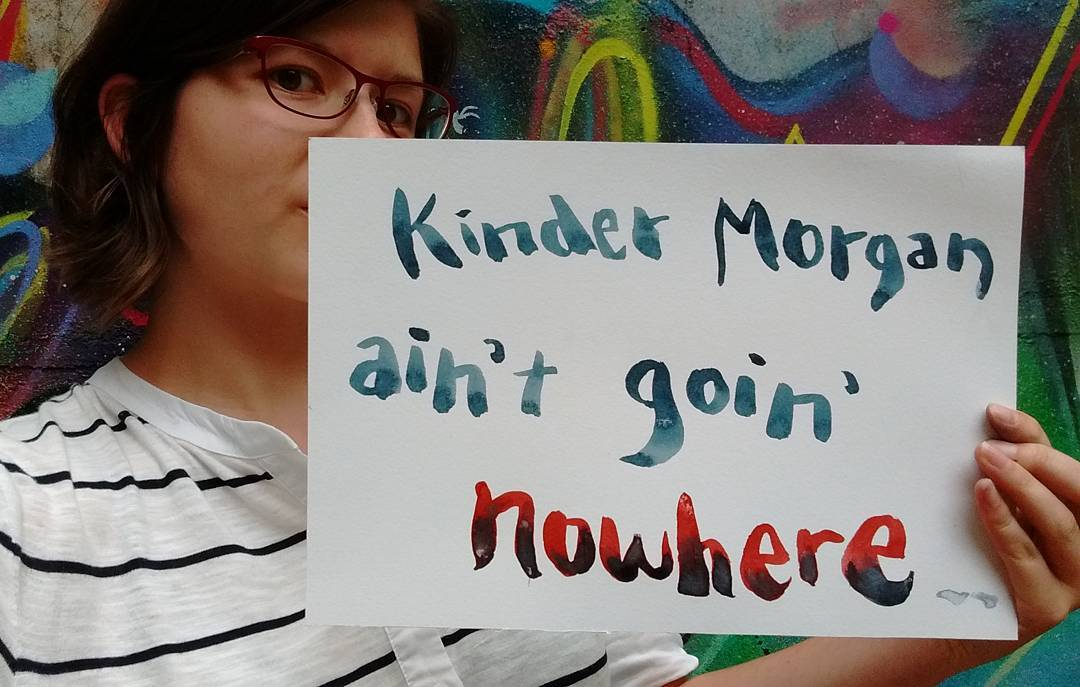 Kinder Morgan
ain't goin'
nowhere